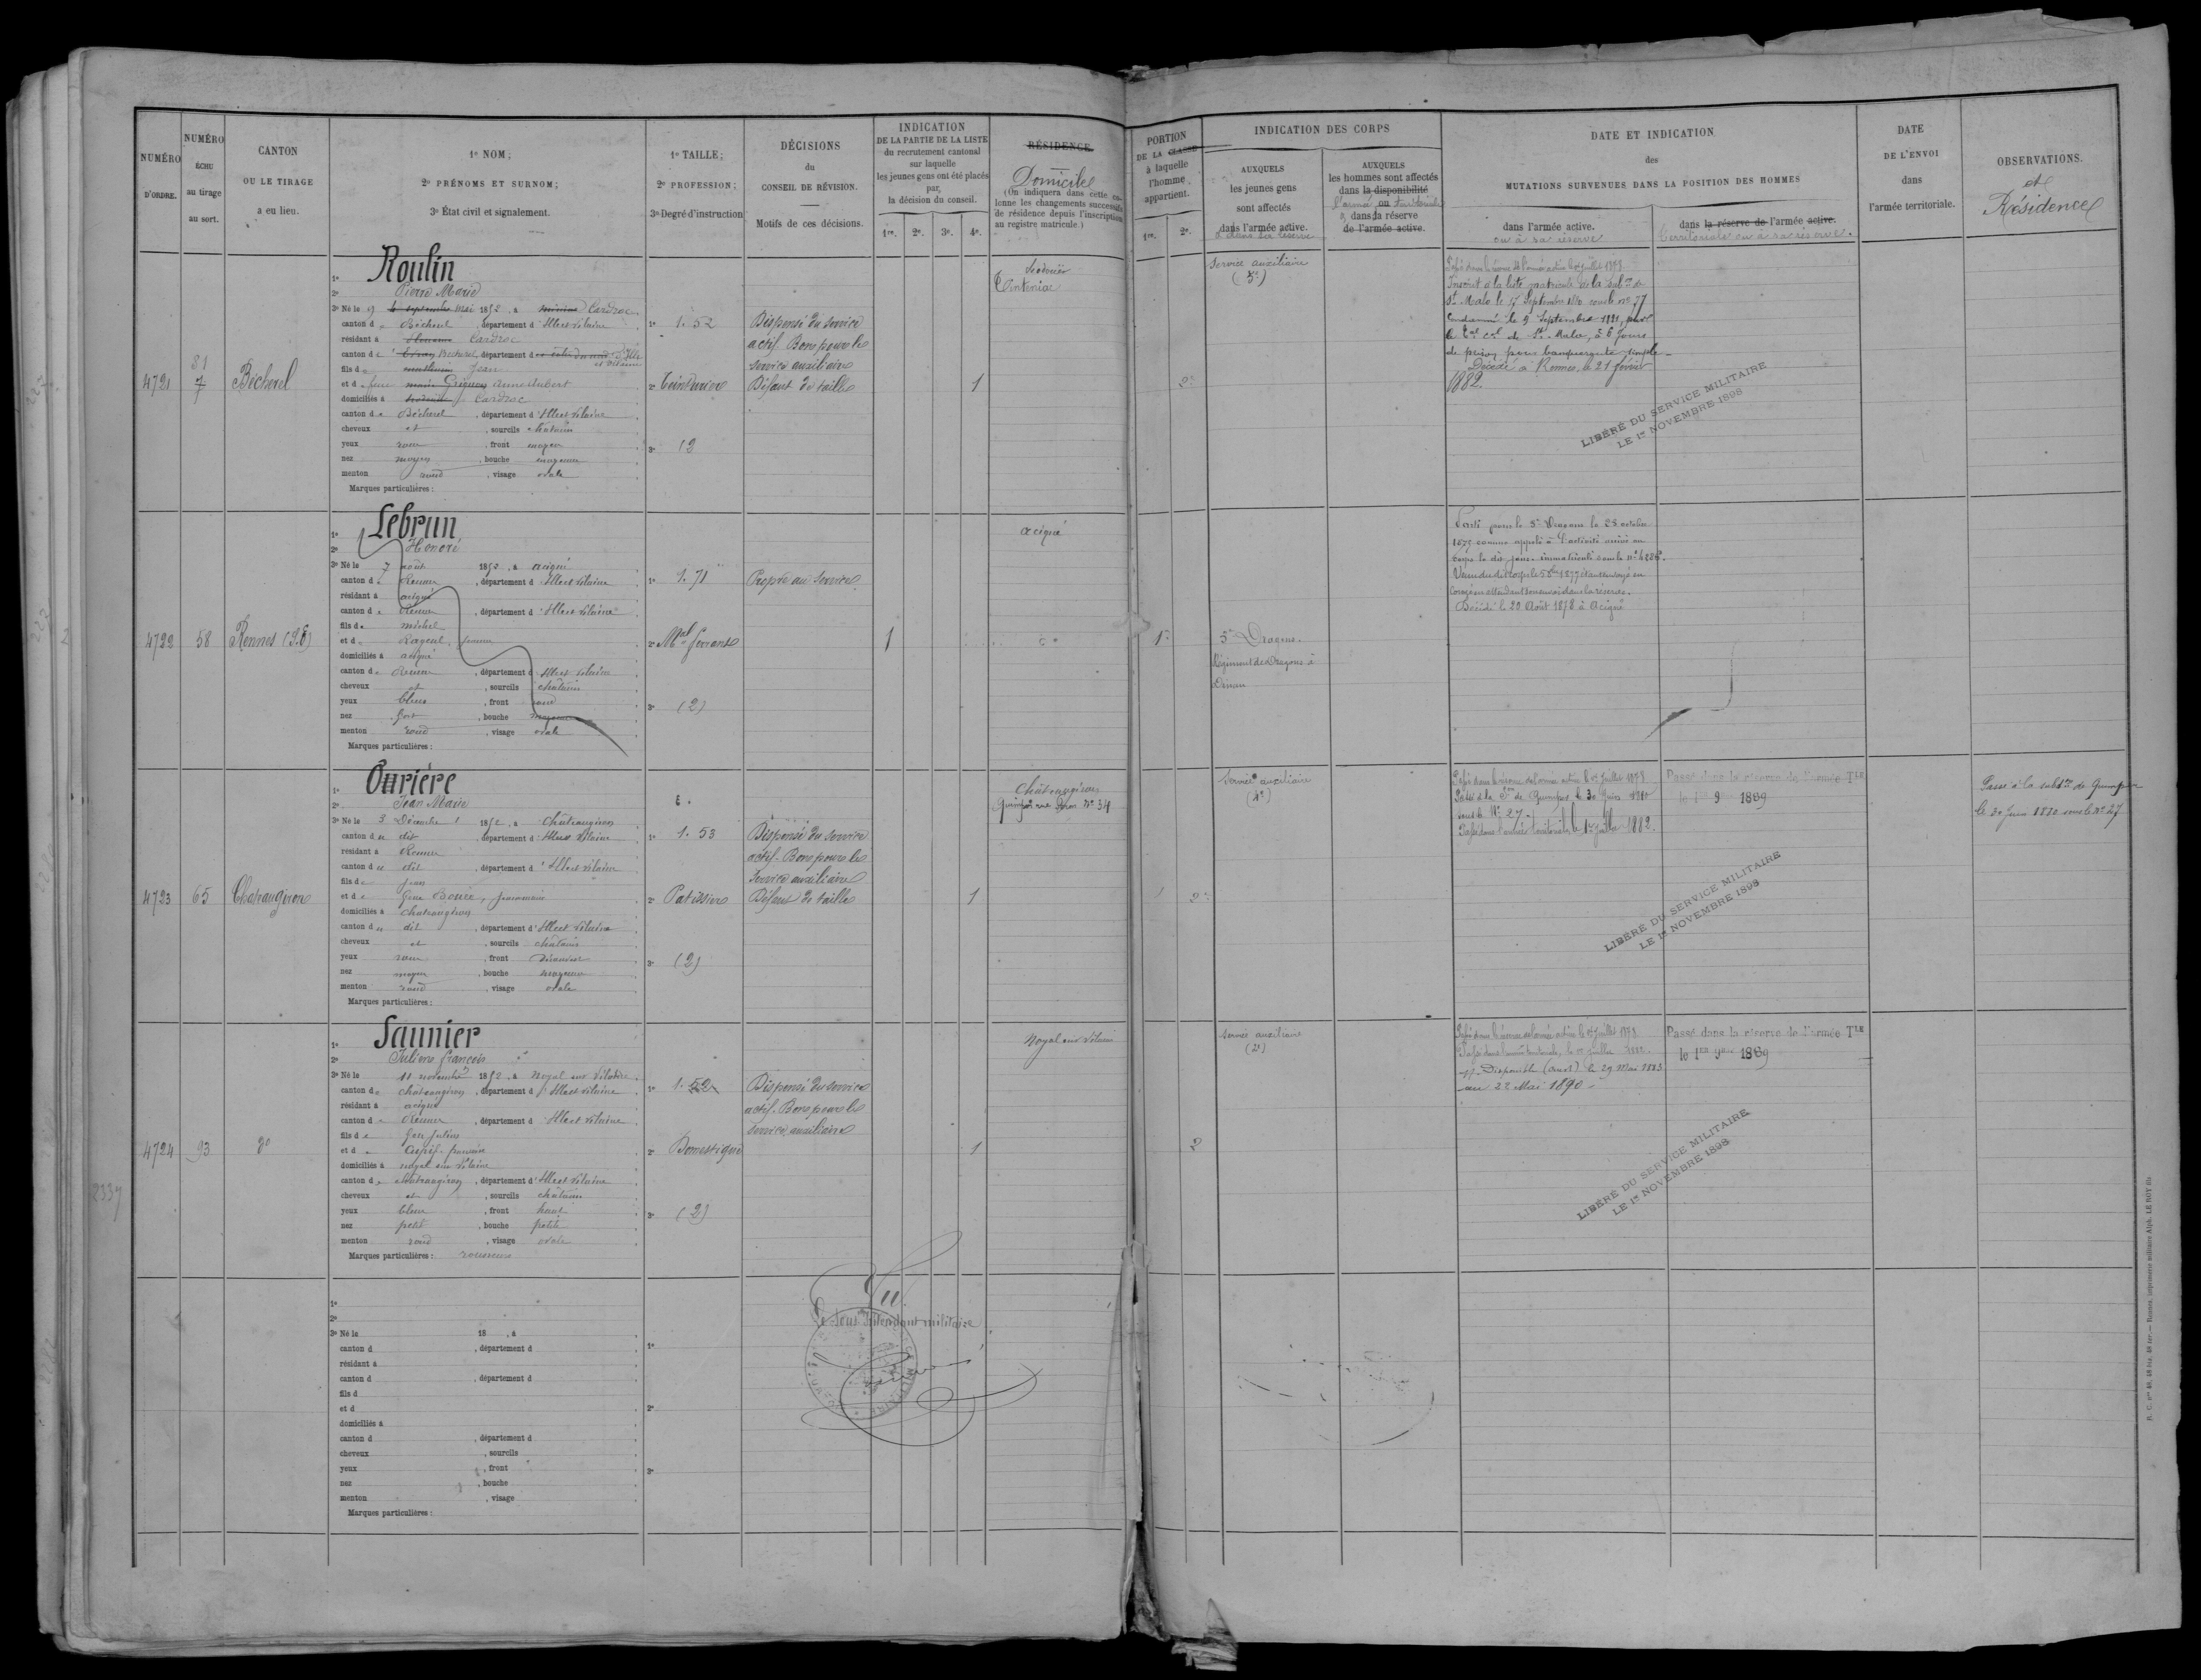 NUMÉRO D'ORDRE.
NUMÉRO ÉCHU au tirage au sort.
CANTON OU LE TIRAGE a eu lieu.
1º NOM;
2º PRÉNOMS ET SURNOM;
3º État civil et signalement.
1º TAILLE;
2º PROFESSION;
3º Degré d'instruction
DÉCISIONS du CONSEIL DE RÉVISION.
Motifs de ces décisions.
INDICATION
DE LA PARTIE DE LA LISTE
du recrutement cantonal
sur laquelle
les jeunes gens ont été placés
par,
la décision du conseil.
1re. 2e. 3e. 4e.
RÉSIDENCE
Domicile
(On indiquera dans cette co-
lonne les changements successifs
de résidence depuis l'inscription
au registre matricule.)
PORTION
DE LA CLASSE
à laquelle
l'homme
appartient.
1re. 2e.
INDICATION DES CORPS
AUXQUELS
les jeunes gens
sont affectés
dans l'armée active.
et dans sa réserve
AUXQUELS
les hommes sont affectés
dans la disponibilité
ou
dans la réserve
de l'armée active.
DATE ET INDICATION
des
MUTATIONS SURVENUES DANS LA POSITION DES HOMMES
dans l'armée active.
ou à sa réserve
dans la réserve de l'armée active.
territoriale ou à sa réserve.
DATE
DE L'ENVOI
dans
l'armée territoriale.
OBSERVATIONS.
et
Résidence
4721
81
7
Bécherel
1º Roulin
2º Pierre Marie
3º Né le 9 mai 1852, à Cardroc
canton de Bécherel, département d'Ille et Vilaine
résidant à Cardroc
canton de Bécherel, département d'Ille et Vilaine
fils de Jean
et de feue Anne Aubert
domiciliés à Cardroc
canton de Bécherel, département d'Ille et Vilaine
cheveux et, sourcils châtain
yeux roux, front moyen
nez moyen, bouche moyenne
menton rond, visage ovale
Marques particulières:
1º 1.52
2º Teinturier
3º (3
Dispensé du service
actif. Bon pour le
service auxiliaire
Défaut de taille
1
Tinténiac
2e
Service auxiliaire
Passé dans la réserve de l'armée active le 1er juillet 1878
Inscrit à la liste matricule de la subon de
St Malo le 17 Septembre 1880 sous le no 77
Condamné le 9 Septembre 1881, par
le Tal cel de St Malo, à 6 jours
de prison pour banqueroute simple
Décédé à Rennes, le 21 février
1882.
LIBÉRÉ DU SERVICE MILITAIRE
LE 1er NOVEMBRE 1898
4722
58
Rennes (S.E)
1º Lebrun
2º Honoré
3º Né le 7 août 1852, à Acigné
canton de Rennes, département d'Ille et Vilaine
résidant à Acigné
canton de Rennes, département d'Ille et Vilaine
fils de Michel
et de Rageul
domiciliés à Acigné
canton de Rennes, département d'Ille et Vilaine
cheveux et, sourcils châtain
yeux bleus, front rond
nez fort, bouche moyenne
menton rond, visage ovale
Marques particulières:
1º 1.71
2º Mal ferrant
3º (2)
Propre au service
1
Acigné
1e
5e Dragons.
Régiment de Dragons à
Dinan
Parti pour le 5e Dragons le 28 octobre
1873 comme appelé à l'activité arrivé au
corps le dit jour. immatriculé sous le no 4286.
Décédé le 20 Août 1878 à Acigné
4723
65
Chateaugiron
1º Ourière
2º Jean Marie
3º Né le 3 Décembre 1852, à Chateaugiron
canton du dit, département d'Ille et Vilaine
résidant à Rennes
canton du dit, département d'Ille et Vilaine
fils de Jean
et de
domiciliés à Chateaugiron
canton du dit, département d'Ille et Vilaine
cheveux et, sourcils châtain
yeux roux, front découvert
nez moyen, bouche moyenne
menton rond, visage ovale
Marques particulières:
1º 1.53
2º Patissier
3º (2)
Dispensé du service
actif. Bon pour le
service auxiliaire
Défaut de taille
1
Châteaugiron
2e
Service auxiliaire
Passé dans la réserve de l'armée active le 1er juillet 1878
Passé à la Son de Quimper le 30 Juin 1880
sous le No 27.
Passé dans l'armée territoriale le 1er juillet 1882.
Passé dans la réserve de l'armée TLE
le 1er 9bre 1889
LIBÉRÉ DU SERVICE MILITAIRE
LE 1er NOVEMBRE 1898
Passé à la subdon de Quimper
le 30 Juin 1880 sous le No 27
4724
93
do
1º Saunier
2º Julien François
3º Né le 11 novembre 1852, à Noyal sur Vilaine
canton de Châteaugiron, département d'Ille et Vilaine
résidant à Acigné
canton de Rennes, département d'Ille et Vilaine
fils de feu Julien
et de
domiciliés à Noyal sur Vilaine
canton de Châteaugiron, département d'Ille et Vilaine
cheveux et, sourcils châtain
yeux bleus, front haut
nez petit, bouche petite
menton rond, visage ovale
Marques particulières: rousseurs
1º 1.52
2º Domestique
3º (2)
Dispensé du service
actif. Bon pour le
service auxiliaire
1
Noyal sur Vilaine
2
Service auxiliaire
Passé dans la réserve de l'armée active le 1er juillet 1878
Passé dans l'armée territoriale, le 1er juillet 1882.
Non Disponible le 29 Mai 1883
au 22 Mai 1890
Passé dans la réserve de l'armée TLE
le 1er 9bre 1889
LIBÉRÉ DU SERVICE MILITAIRE
LE 1er NOVEMBRE 1898
1º
2º
3º Né le 18 , à
canton d , département d
résidant à
canton d , département d
fils d
et d
domiciliés à
canton d , département d
cheveux , sourcils
yeux , front
nez , bouche
menton , visage
Marques particulières:
1º
2º
3º
Vu.
Le Sous Intendant militaire
2337